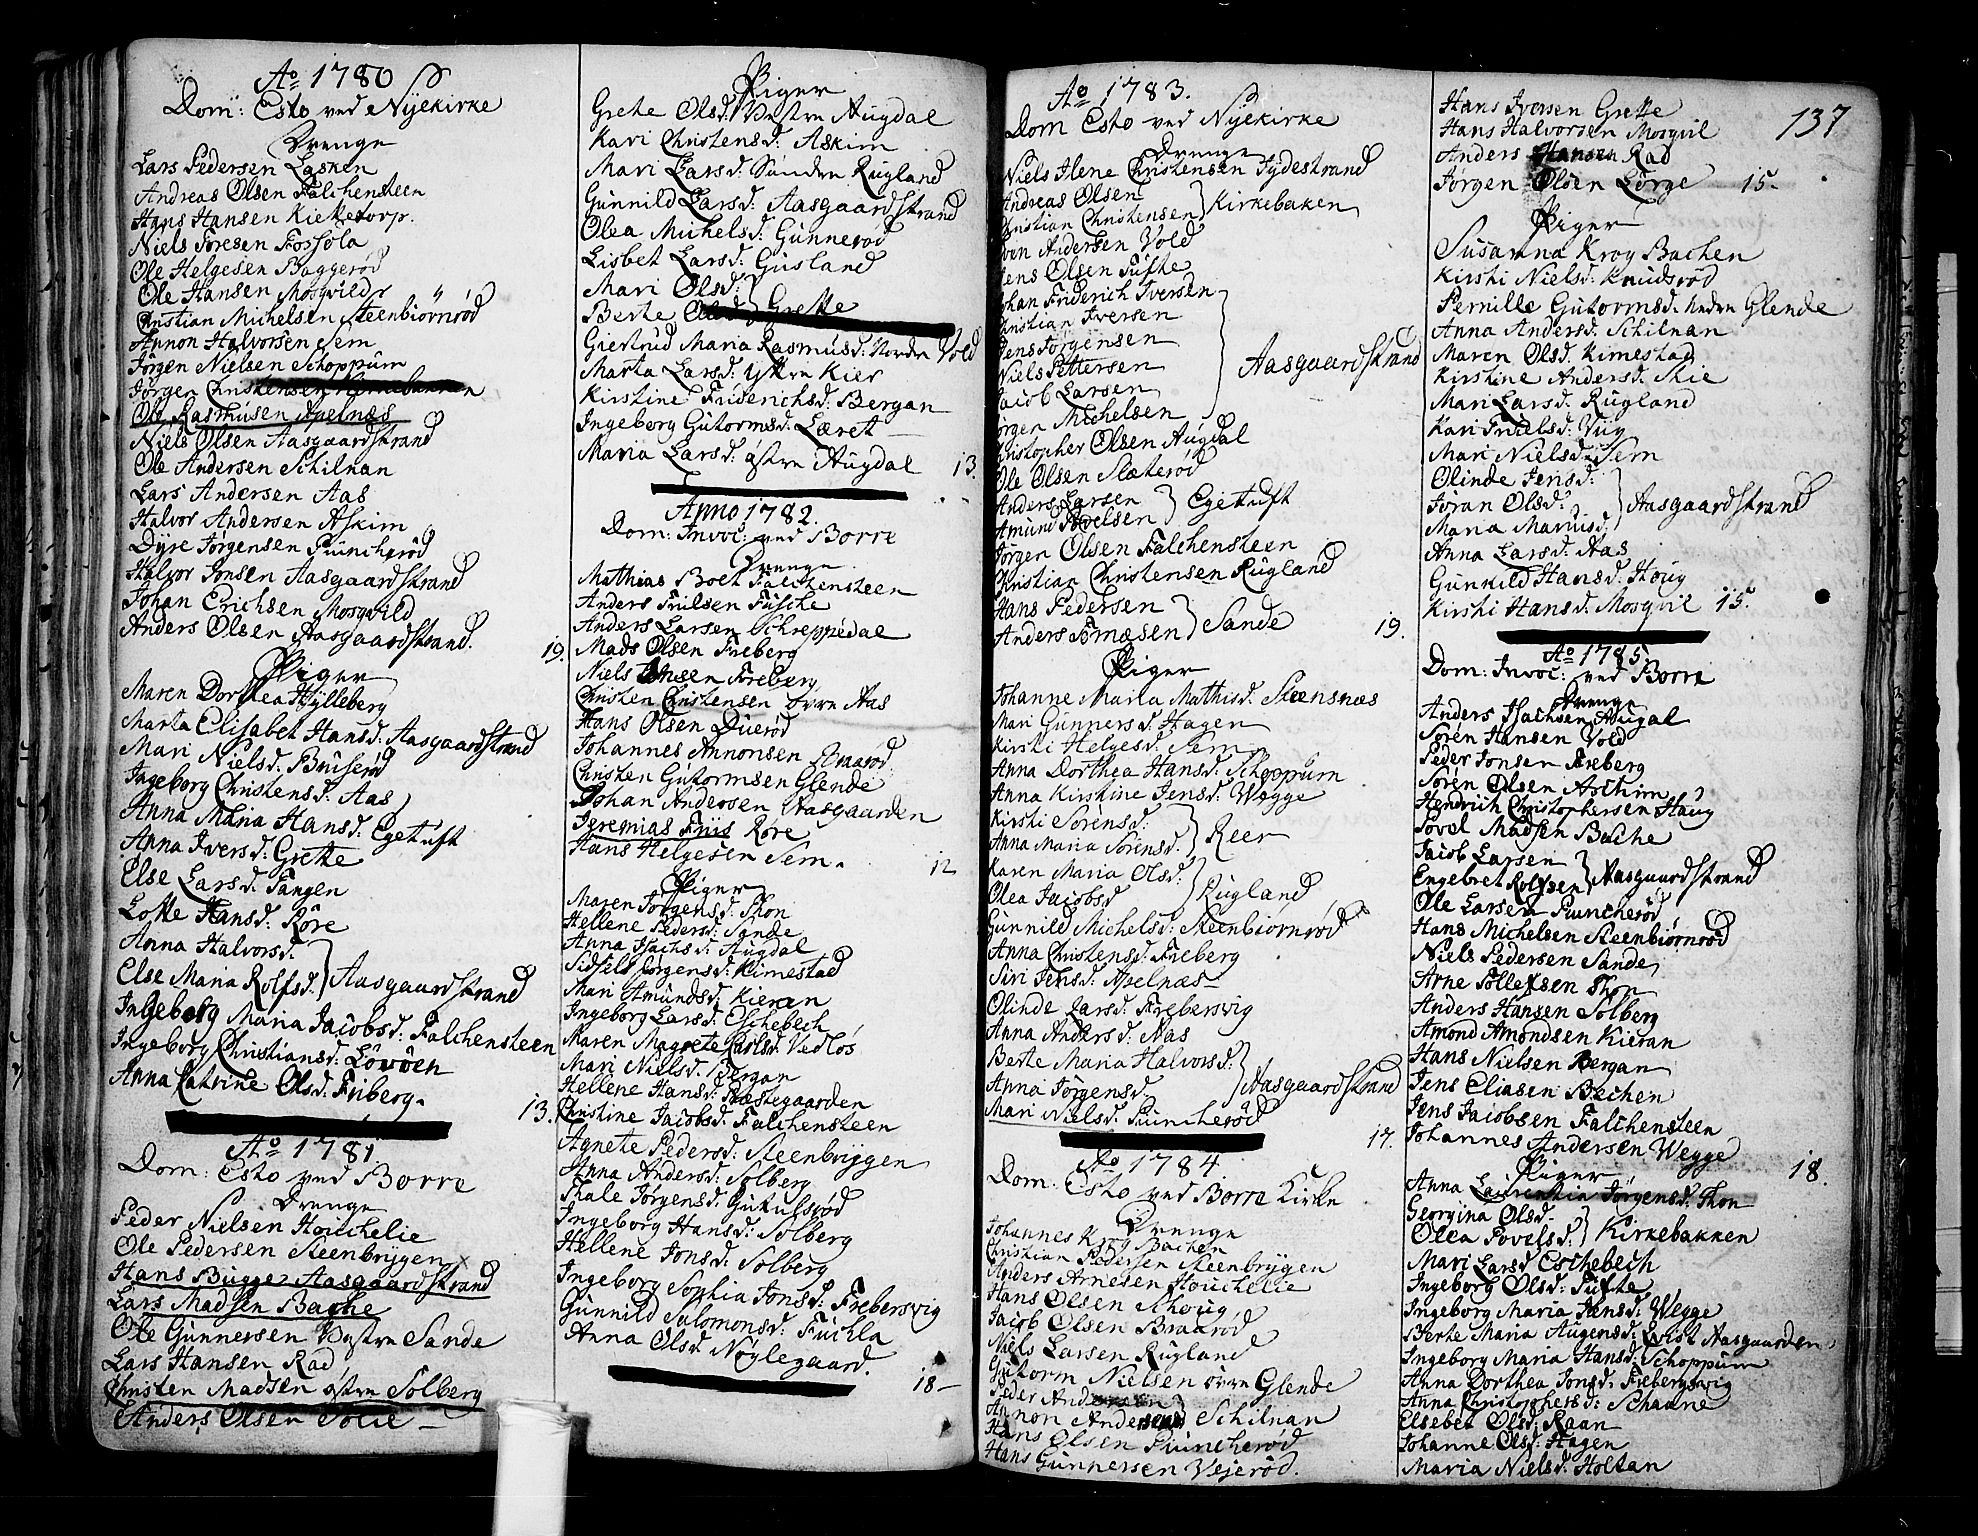 Ao 1780
Dom: Esto ved Nÿekirke
Drenge
Lars Pedersen Lasken
Andreas Olsen Falchensteen
Hans Hansen Kicketorp.
Niels Foresen Fossola
Ole Helgesen Baggerød
Ole Hansen Mosqvild
Christian Michelsen Steenbiørnrød
Annon Halvorsen Sem
Jørgen Nielsen Schoppum
Jørgen Christensen
Ole Rasmusen Apelnæs
Niels Olsen Aasgaardstrand
Ole Andersen Schilnan
Lars Andersen Aas
Halvor Andersen Askim
Dyre Jørgensen Puncherød
Halvor Jonsen Aasgaardstrand
Johan Erichsen Mosqvild
Anders Olsen Aasgaardstrand. 19.
Piger
Maren Dorthea Hÿlleberg
Marta Elisabet Hansd: Aasgaardstrand
Mari Nielsd: Bruserød
Ingeborg Christensd: Aas
Anna Maria Hansd: Egetuft
Anna Iversd: Grette
Else Larsd: Tangen
Lotte Hansd: Røre
Anna Halvorsd.
Else Maria Rolfsd: } Aasgaardstrand
Ingeborg Maria Jacobsd: Falchensteen
Ingeborg Christiansd: Løvøen
Anna Catrine Olsd: Friberg. 13.
Ao 1781.
Dom: Esto ved Borre
Drenge
Peder Nielsen Houchelie
Ole Pedersen Steenbrÿgen
Hans Bugge Aasgaardstrand
Lars Madsen Bache
Ole Gunnersen Vestre Sande
Lars Hansen Rad
Christen Madsen østre Solberg
Anders Olsen Solie
Piger
Grete Olsd: Vestre Augdal
Kari Christensd: Askim
Mari Larsd: Søndre Rugland
Gunnild Larsd: Aasgaardstrand
Olea Michelsd: Gunnerød
Lisbet Larsd: Gusland
Mari Olsd:
Berte Olsd } Grette
Giertrud Maria Rasmusd: Nordre Vold
Marta Larsd: ÿttre Kier
Kirstine Friderichsd: Bergan
Ingeborg Gutormsd: Læret
Maria Larsd: østre Augdal 13.
Anno 1782.
Dom: Invoc: ved Borre
Drenge
Mathias Boet Falchensteen
Anders Friilsen Fusche
Anders Larsen Schreppedal
Mads Olsen Freberg
Niels Jonsen Freberg
Christen Christensen øvre Aas
Hans Olsen Duerød
Johannes Annonsen
Christen Gutormsen Glende
Johan Andersen Aasgaarden
Jeremias Friis Røre
Hans Helgesen Sem. 12
Piger
Maren Jørgensd: Thon
Hellene Pedersd: Sande
Anna Isachsd: Augdal
Sidsels Jørgensd: Kimestad
Mari Amundsd: Kieran
Ingeborg Larsd: Eschebech
Maren Magrete Carlsd: Vedløs
Mari Nielsd: Bergan
Hellene Hansd: Præstegaarden
Christine Jacobsd: Falchensteen
Agnete Pedersd: Steenbrÿgen
Anna Andersd: Solberg
Thale Jørgensd: Gutulfsrød
Ingeborg Hansd: Solberg
Hellene Jonsd: Solberg
Ingeborg Sophia Jonsd: Frebersvig
Gunnild Salomonsd: Fuchla
Anna Olsd: Nøglegaard. 18 –
Ao 1783.
Dom Esto ved Nÿekirke
Drenge
Niels Ilene Christensen Tydestrand
Andreas Olsen
Christian Christensen } Kirkebakken
Sven Andersen Vold
Jens Olsen Tufte
Johan Friderich Iversen
Christian Iversen
Jens Jørgensen
Niels Pettersen
Jacob Larsen
Jørgen Michelsen } Aasgaardstrand
Christopher Olsen Augdal
Ole Olsen Slæterød
Anders Larsen
Amund Povelsen } Egetuft
Jørgen Olsen Falchensteen
Christian Christensen Rugland
Hans Pedersen
Anders Tomæsen } Sande 19.
Piger
Johanne Maria Mathisd: Steensnæs
Mari Gunnersd: Hagen
Kirsti Helgesd: Sem
Anna Dorthea Hansd: Schoppum
Anna Kirstine Jensd: Wegge
Kirsti Sørensd:
Anna Maria Sørensd: } Reer
Karen Maria Olsd:
Olea Jacobsd } Rugland
Gunnild Michelsd: Steenbiørnrød
Anna Christensd: Freberg
Siri Jensd: Apelnæs
Olinde Larsd: Frebersvig
Anna Andersd: Aas
Berte Maria Halvorsd:
Anna Jørgensd: } Aasgaardstrand
Mari Nielsd: Puncherød 17.
Ao 1784.
Dom: Esto ved Borre Kirke
Drenge
Johannes Krog Bachen
Christian Pedersen Steenbrÿgen
Anders Arnesen Houchelie
Hans Olsen Schoug
Jacob Olsen Braarød
Niels Larsen Rugland
Gutorm Nielsen øvre Glende
Peder Andersen
Annon Andersen } Schilnan
Hans Olsen Puncherød
Hans Gunnersen Vejerød.
137
Hans Iversen Grette
Hans Halvorsen Mosqvil
Anders Hansen Rad
Jørgen Olsen Lørge 15.
Piger
Susanna Krog Bachen
Kirsti Nielsd: Knudsrød
Pernille Gutormsd: Nedre Glende
Anna Andersd: Schilnan
Maren Olsd: Kimestad
Kirstine Andersd: Skie
Mari Larsd: Rugland
Kari Trulsd: Vug
Mari Nielsd: Sem
Olinde Jensd:
Joran Olsd:
Maria Mariusd: } Aasgaardstrand
Anna Larsd: Aas
Gunnild Hansd: Houg
Kirsti Hansd: Mosqvil 15.
Ao 1785.
Dom: Invoc: ved Borre
Drenge
Anders Isachsen Augal
Søren Hansen Vold
Peder Jonsen Freberg
Søren Olsen Aschim
Hendrich Christophersen Haug
Povel Madsen Bache
Jacob Larsen
Engebret Rolfsen } Aasgaardstrand
Ole Larsen Puncherød
Hans Michelsen Steenbiørnrød
Niels Pedersen Sande
Arne Tollefsen Thon
Anders Hansen Solberg
Amond Amondsen Kieran
Hans Nielsen Bergan
Jens Eliasen Bechen
Jens Jacobsen Falchensteen
Johannes Andersen Wegge 18.
Piger
Anna Laurentia Jørgensd: Thon
Georgina Olsd:
Olea Povelsd: } Kirkebakken
Mari Larsd Eschebech
Ingeborg Olsd: Tufte
Ingeborg Maria Jensd: Wegge
Berte Maria Augensd: Qvist Aasgaarden
Ingeborg Maria Hansd: Schoppum
Anna Dorthea Jonsd: Frebergsvig
Anna Christophersd: Schaane
Elsebet Olsd: Raan
Johanne Olsd: Hagen
Maria Nielsd: Holtan